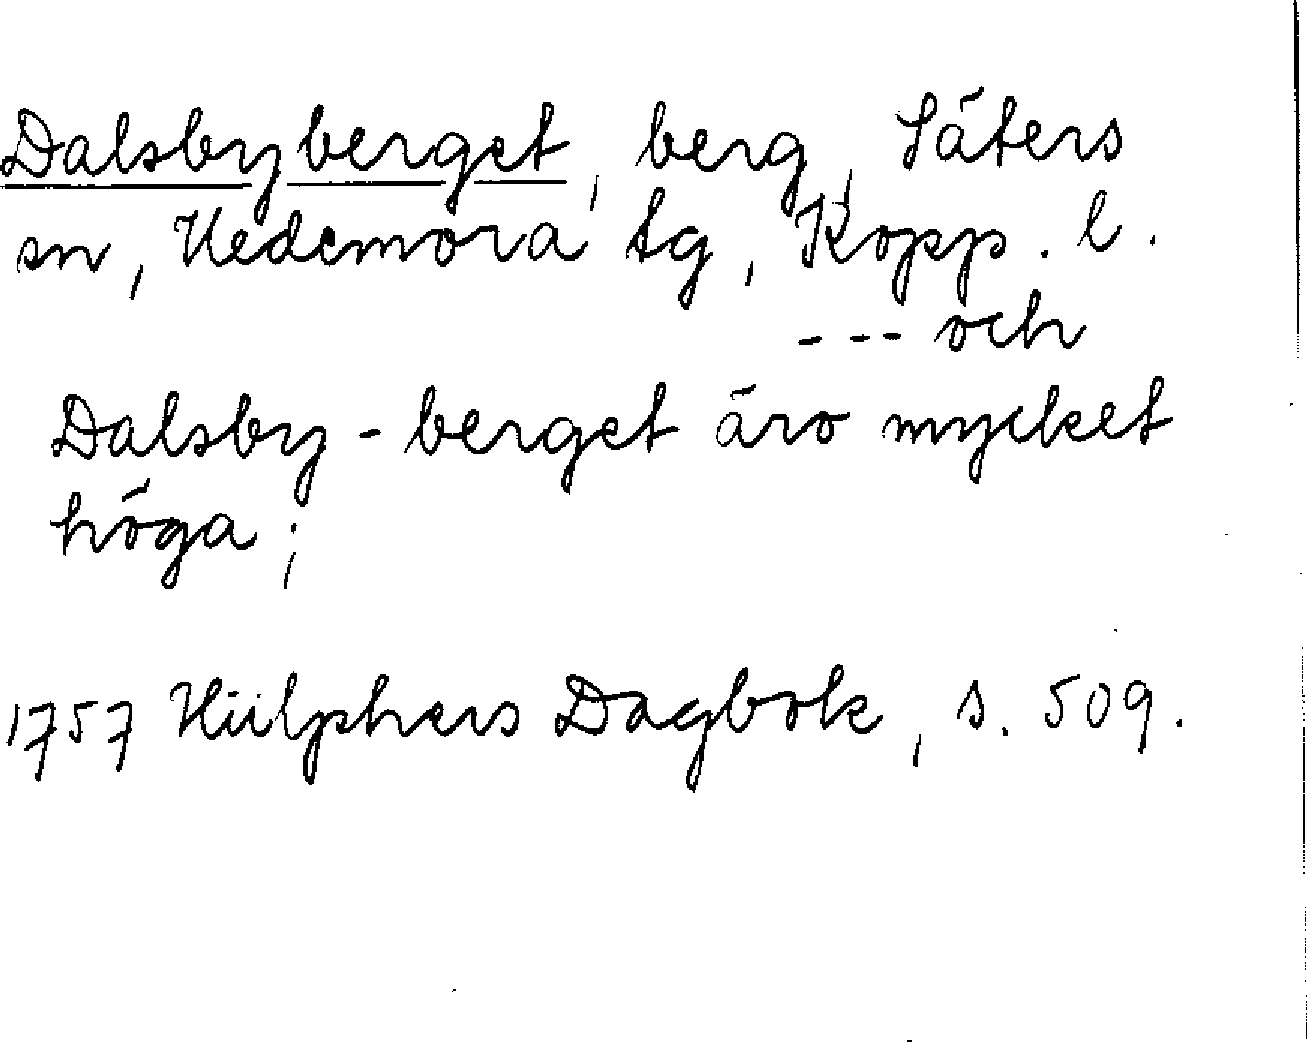 Dalsbyberget, berg, Säters
sn, Hedemora tg, Kopp. l.
--- och
Dalsby-berget äro mycket
höga;
1757 Hülphers Dagbok, s. 509.